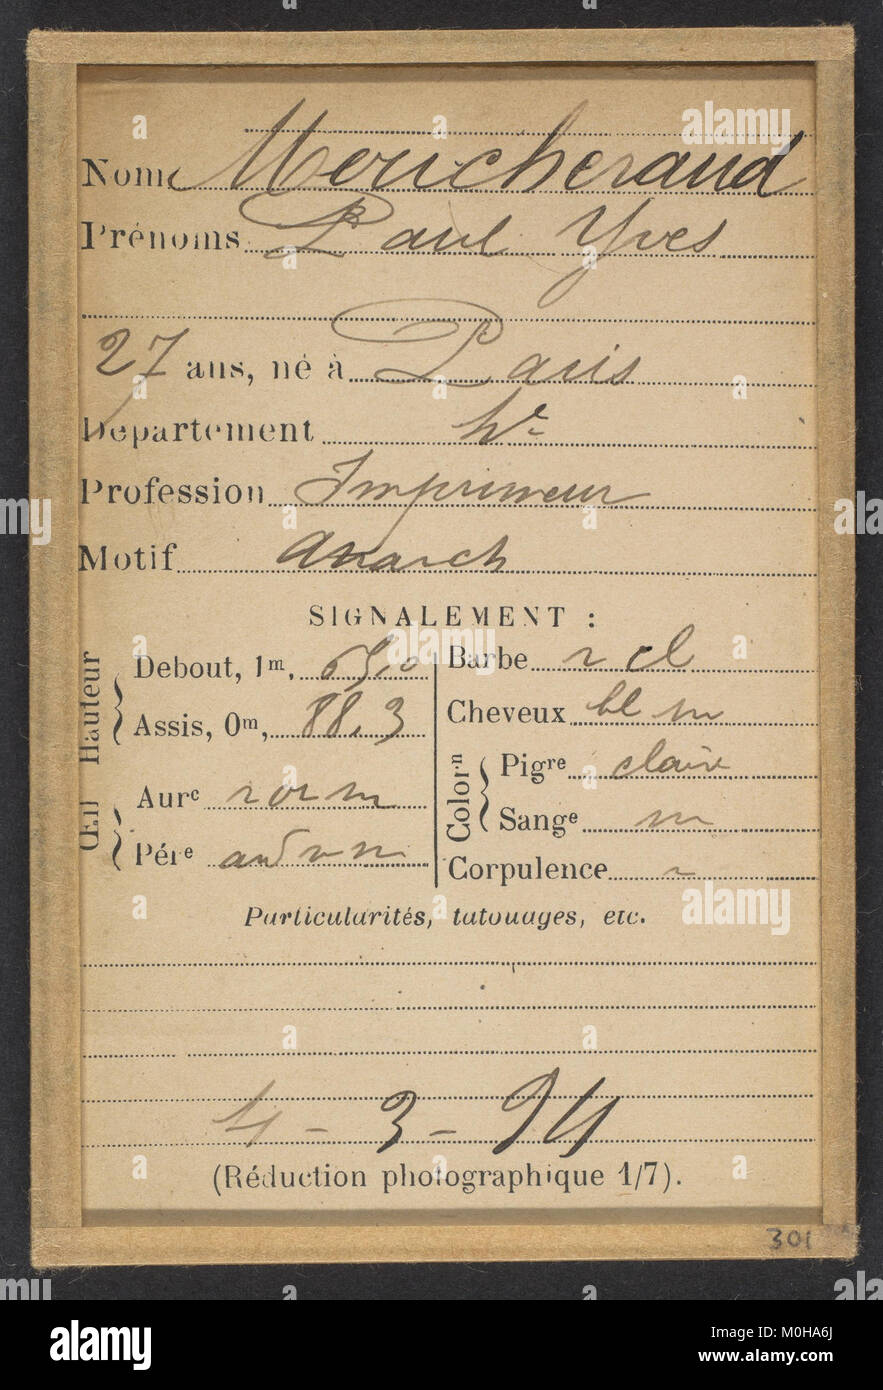 Nom Moucheraud
Prénoms Paul Yves
27 ans, né à Paris
Département
Profession Imprimeur
Motif Anarch
SIGNALEMENT :
Hauteur
Debout, 1m, 65,0
Assis, 0m, 88,3
Œil
Aure
Pére
Barbe r cl
Cheveux bl m
Colorn
Pigre claire
Sange m
Corpulence
Particularités, tatouages, etc.
4 - 3 - 94
(Réduction photographique 1/7).
301
alamy
Image ID: M0HA6J
www.alamy.com